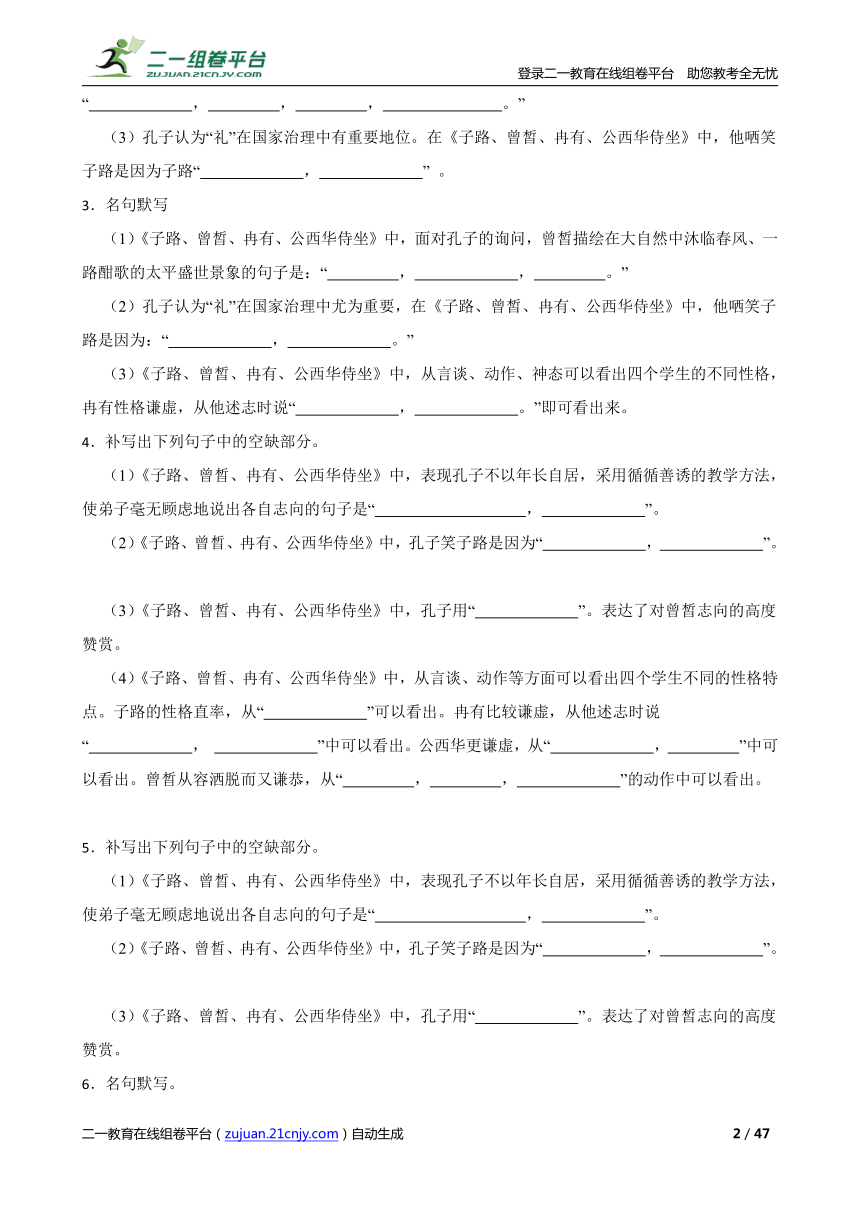 二一组卷平台
ZUJUAN.21CNJY.COM
登录二一教育在线组卷平台 助您教考全无忧
“______________,__________,__________,________________。”
(3)孔子认为“礼”在国家治理中有重要地位。在《子路、曾皙、冉有、公西华侍坐》中,他哂笑
子路是因为子路“______________,______________” 。
3.名句默写
(1)《子路、曾皙、冉有、公西华侍坐》中,面对孔子的询问,曾皙描绘在大自然中沐临春风、一
路酣歌的太平盛世景象的句子是:“__________,______________,__________。”
(2)孔子认为“礼”在国家治理中尤为重要,在《子路、曾皙、冉有、公西华侍坐》中,他哂笑子
路是因为:“______________,______________。”
(3)《子路、曾皙、冉有、公西华侍坐》中,从言谈、动作、神态可以看出四个学生的不同性格,
冉有性格谦虚,从他述志时说“______________,______________。”即可看出来。
4.补写出下列句子中的空缺部分。
(1)《子路、曾皙、冉有、公西华侍坐》中,表现孔子不以年长自居,采用循循善诱的教学方法,
使弟子毫无顾虑地说出各自志向的句子是“____________________,______________”。
(2)《子路、曾皙、冉有、公西华侍坐》中,孔子笑子路是因为“______________,______________”。
(3)《子路、曾皙、冉有、公西华侍坐》中,孔子用“______________”。表达了对曾皙志向的高度
赞赏。
(4)《子路、曾皙、冉有、公西华侍坐》中,从言谈、动作等方面可以看出四个学生不同的性格特
点。子路的性格直率,从“______________”可以看出。冉有比较谦虚,从他述志时说
“______________, ______________”中可以看出。公西华更谦虚,从“______________,__________”中可
以看出。曾皙从容洒脱而又谦恭,从“__________,__________,______________”的动作中可以看出。
5.补写出下列句子中的空缺部分。
(1)《子路、曾皙、冉有、公西华侍坐》中,表现孔子不以年长自居,采用循循善诱的教学方法,
使弟子毫无顾虑地说出各自志向的句子是“____________________,______________”。
(2)《子路、曾皙、冉有、公西华侍坐》中,孔子笑子路是因为“______________,______________”。
(3)《子路、曾皙、冉有、公西华侍坐》中,孔子用“______________”。表达了对曾皙志向的高度
赞赏。
6.名句默写。
二一教育在线组卷平台(zujuan.21cnjy.com)自动生成 2 / 47